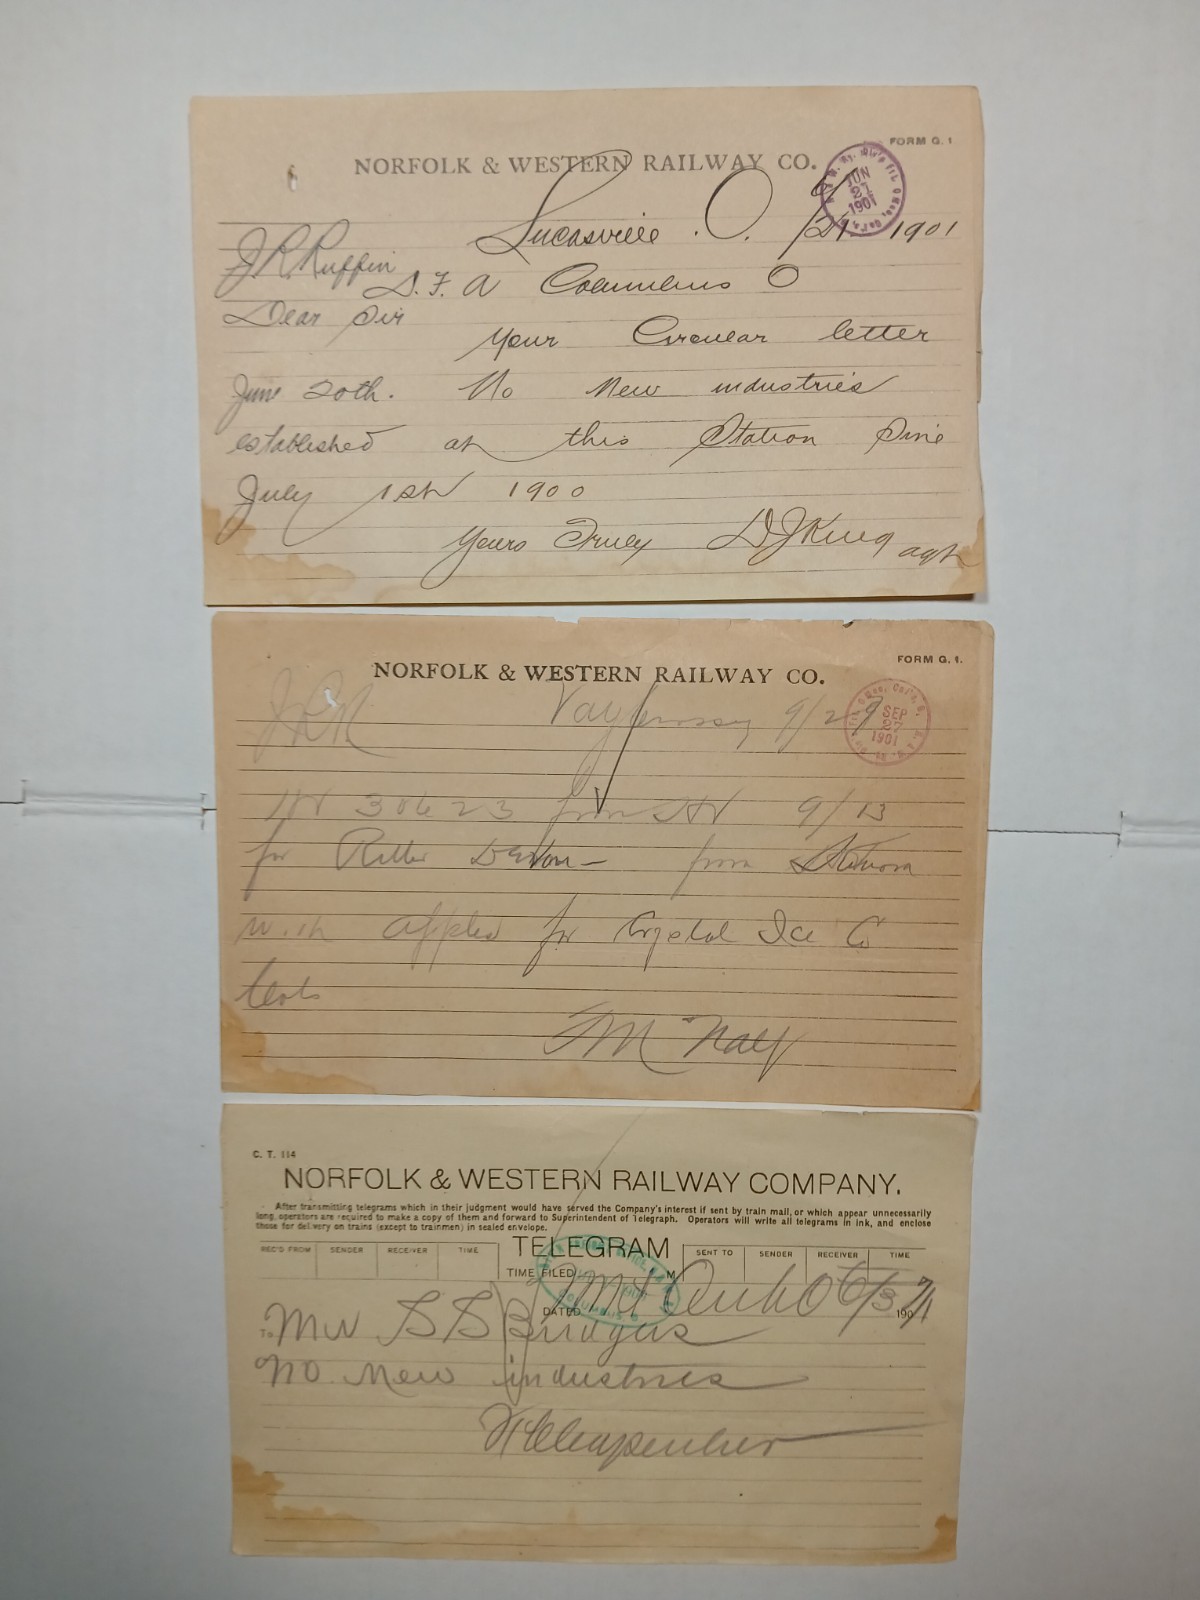 FORM G. 1
NORFOLK & WESTERN RAILWAY CO.
JUN
21
1901
Lucasville . O. 6/21 1901
J. R. Ruffin
D. F. A Columbus O
Dear Sir
Your Circular letter
June 20th. No New industries
established at this Station Since
July 1st 1900
Yours Truly D J King agt
FORM G. 1.
NORFOLK & WESTERN RAILWAY CO.
SEP
27
1901
JRR
9/27
30623 from 9/13
for from
with applied for Crystal Ice Co
FORM McNally
C. T. 114
NORFOLK & WESTERN RAILWAY COMPANY.
After transmitting telegrams which in their judgment would have served the Company's interest if sent by train mail, or which appear unnecessarily
long, operators are required to make a copy of them and forward to Superintendent of Telegraph. Operators will write all telegrams in ink, and enclose
those for delivery on trains (except to trainmen) in sealed envelope.
TELEGRAM
REC'D FROM SENDER RECEIVER TIME
SENT TO SENDER RECEIVER TIME
TIME FILED M
DATED 6/3 1901
COLUMBUS, O.
To Mr S S Bridgers
No. New industries
H C Carpenter